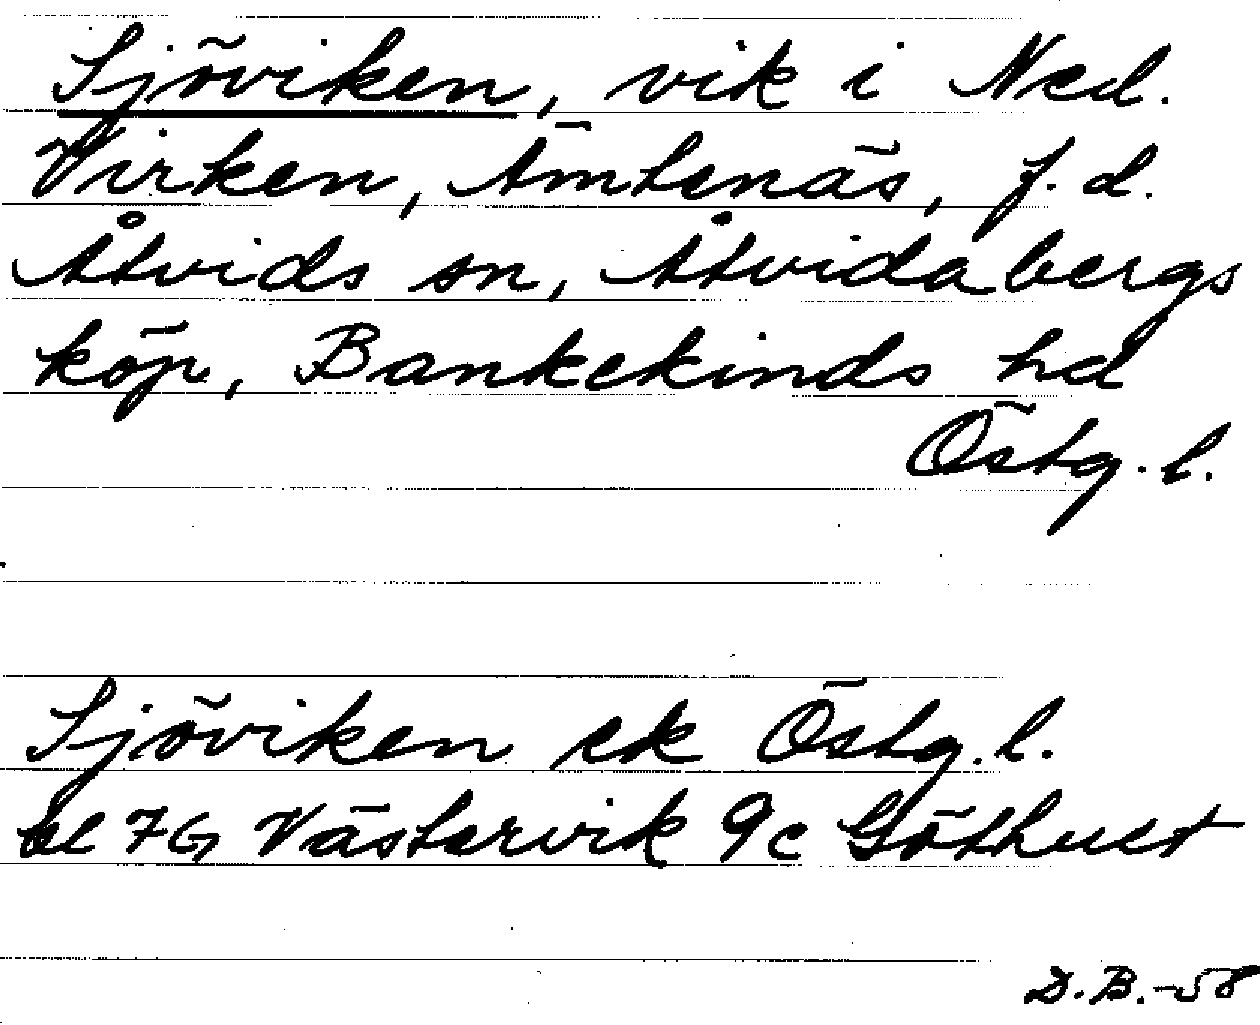 Sjöviken, vik i Ned.
Virken, Ämtenäs, f.d.
Åtvids sn, Åtvidabergs
köp, Bankekinds hd
Östg.l.
Sjöviken ek Östg.l.
bl 7G Västervik 9c
D.B.-58